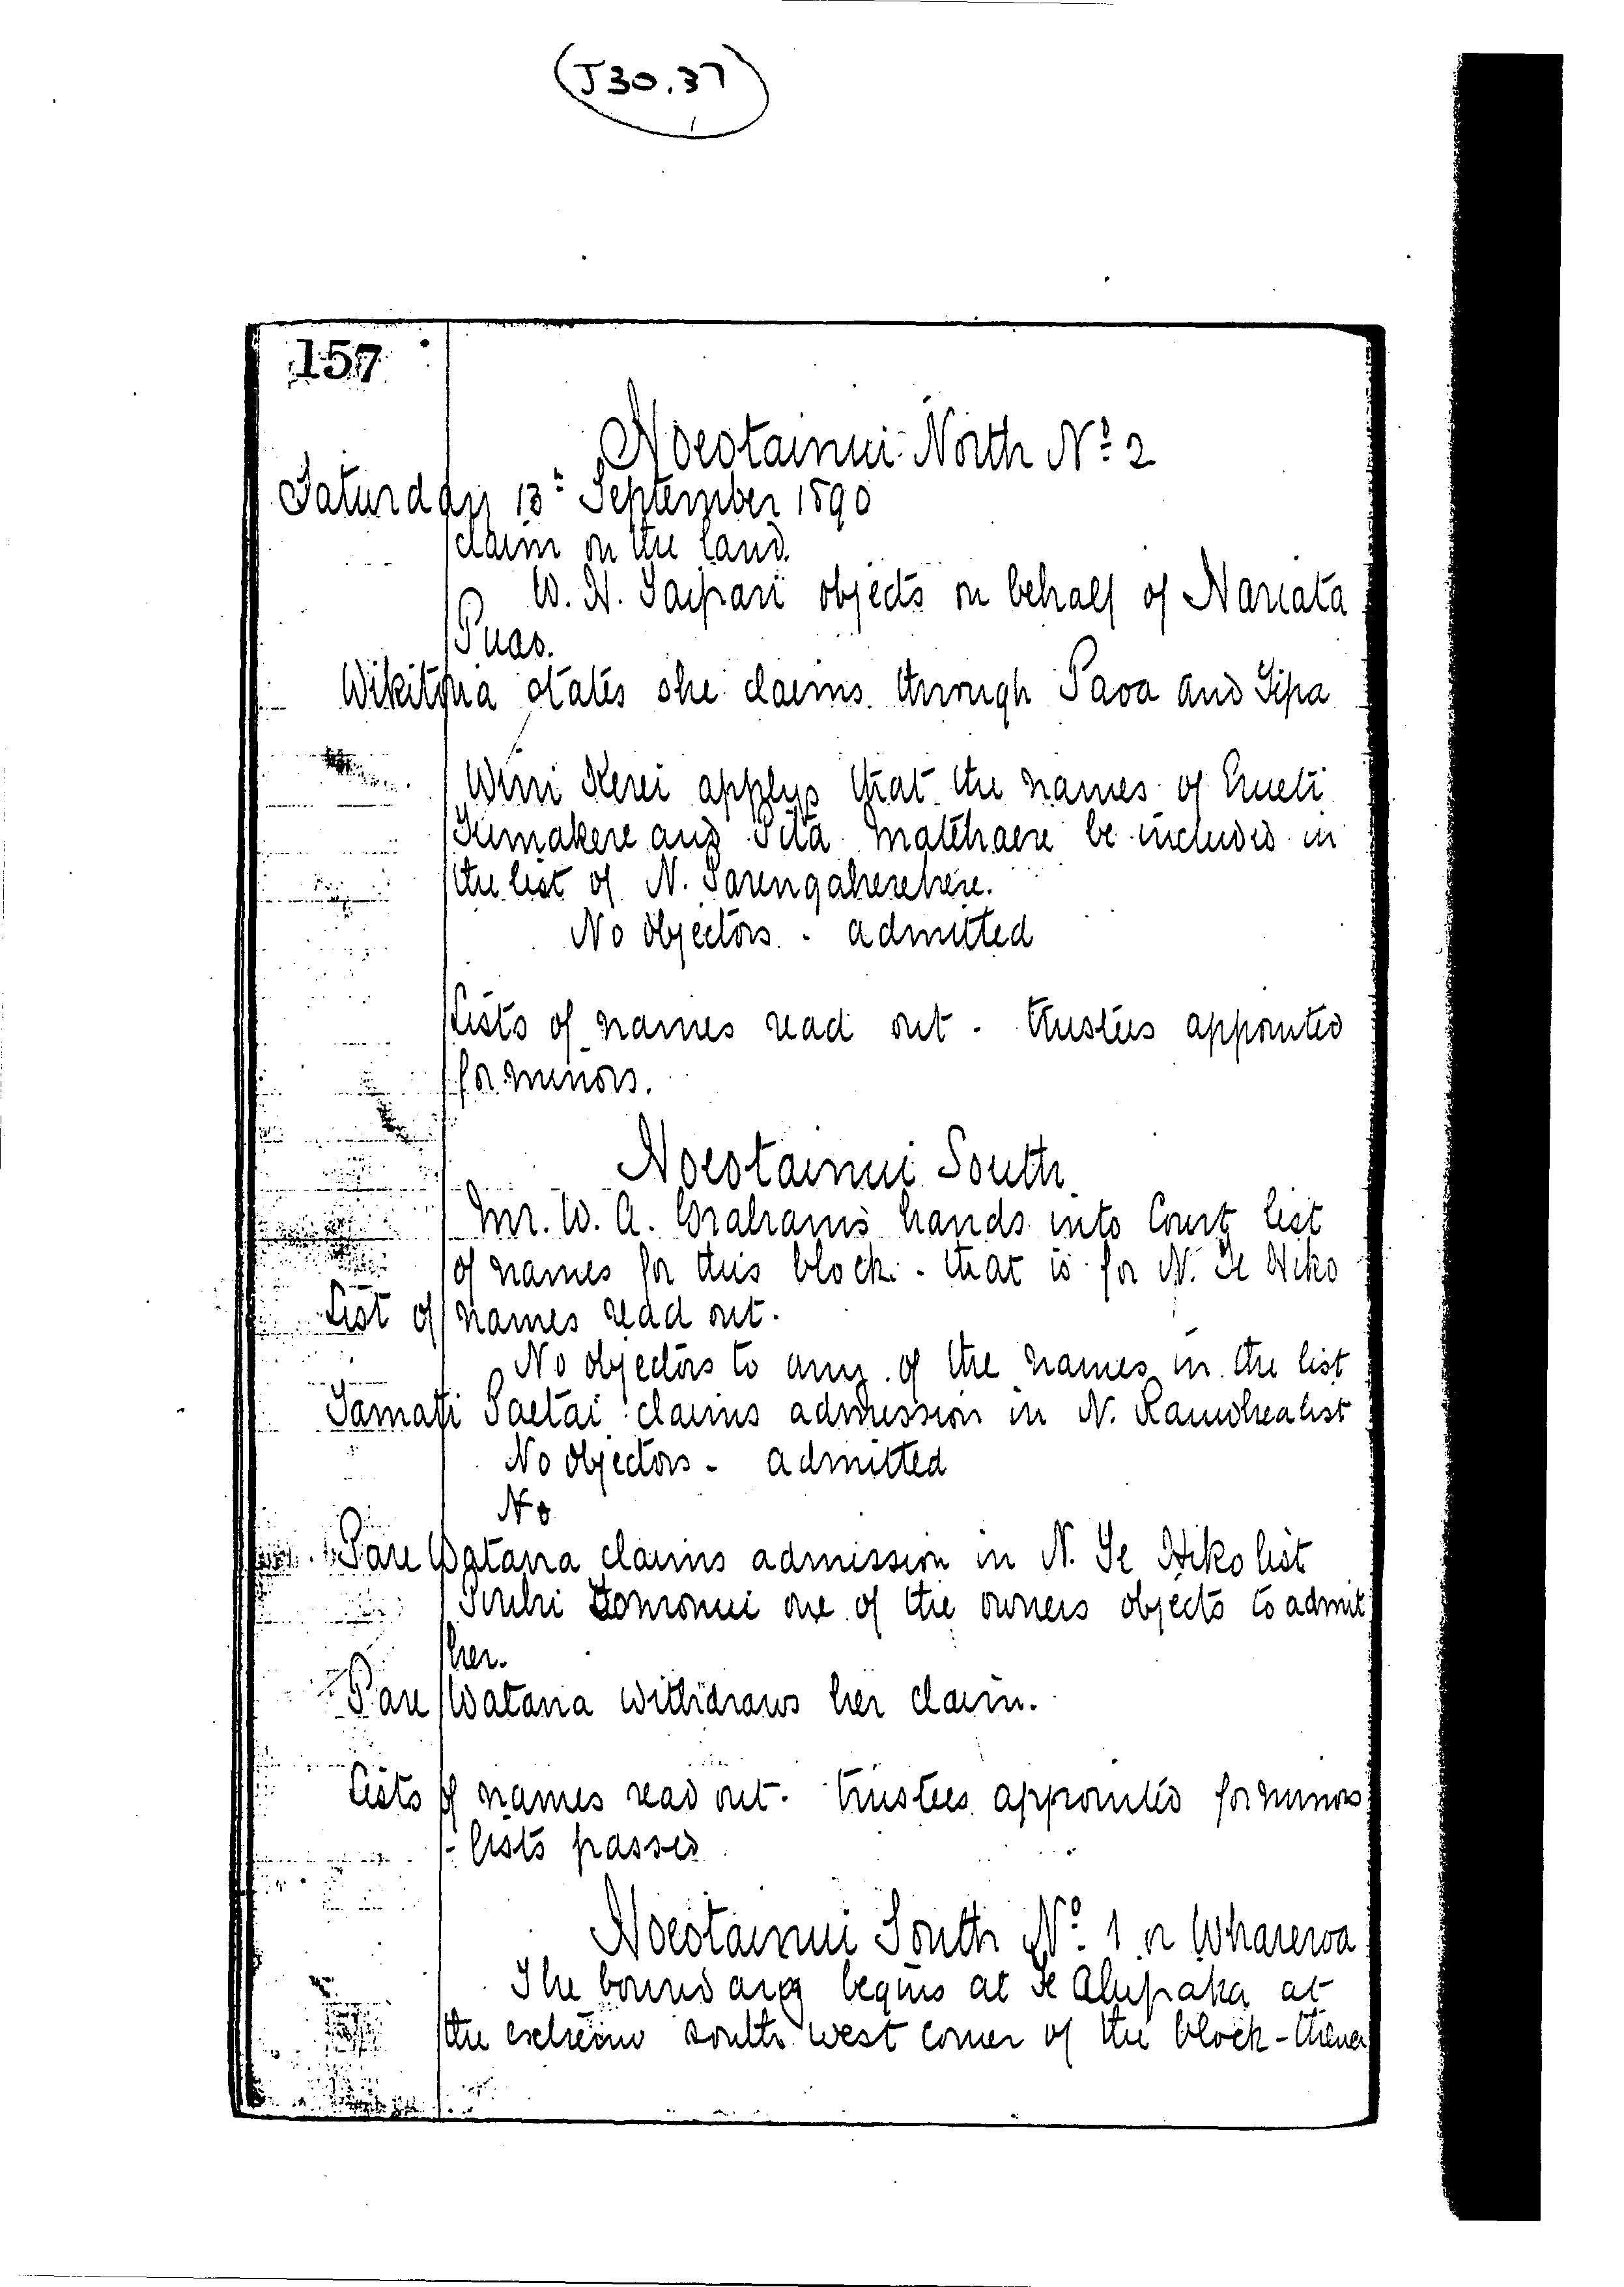 (J30.37)
157
Hoeotainui North No. 2
Saturday 13th September 1890
claim on the land.
W. H. Taipari objects on behalf of Hariata
Puao.
Wikitoria states she claims through Paoa and Tipa
Wini Kerei applys that the names of Erueti
Tumakere and Pita Matehaere be included in
the list of N. Parengaherehere.
No objectors. admitted
Lists of names read out - trustees appointed
for minors.
Hoeotainui South
Mr. W. A. Grahams hands into Court list
of names for this block - that is for N. Te Hiko
List of names read out.
No objectors to any of the names in the list
Tamati Paetai claims admission in N. Rauwhea list
No objectors - admitted
No
Pare Watana claims admission in N. Te Hiko list
Piruhi Tomonui one of the owners objects to admit
her.
Pare Watana withdraws her claim.
Lists of names read out. trustees appointed for minors
- lists passed
Hoeotainui South No. 1 or Whareroa
The boundary begins at Te at
the extreme south west corner of the block - thence